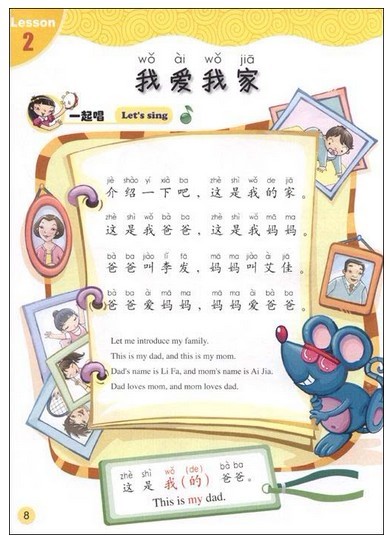 Lesson
2
wǒ ài wǒ jiā
我爱我家
一起唱 Let's sing
jiè shào yí xià ba zhè shì wǒ de jiā
介绍一下吧，这是我的家。
zhè shì wǒ bà ba zhè shì wǒ mā ma
这是我爸爸，这是我妈妈。
bà ba jiào lǐ fā mā ma jiào ài jiā
爸爸叫李发，妈妈叫艾佳。
bà ba ài mā ma mā ma ài bà ba
爸爸爱妈妈，妈妈爱爸爸。
Let me introduce my family.
This is my dad, and this is my mom.
Dad's name is Li Fa, and mom's name is Ai Jia.
Dad loves mom, and mom loves dad.
zhè shì wǒ (de) bà ba
这是我(的)爸爸。
This is my dad.
8